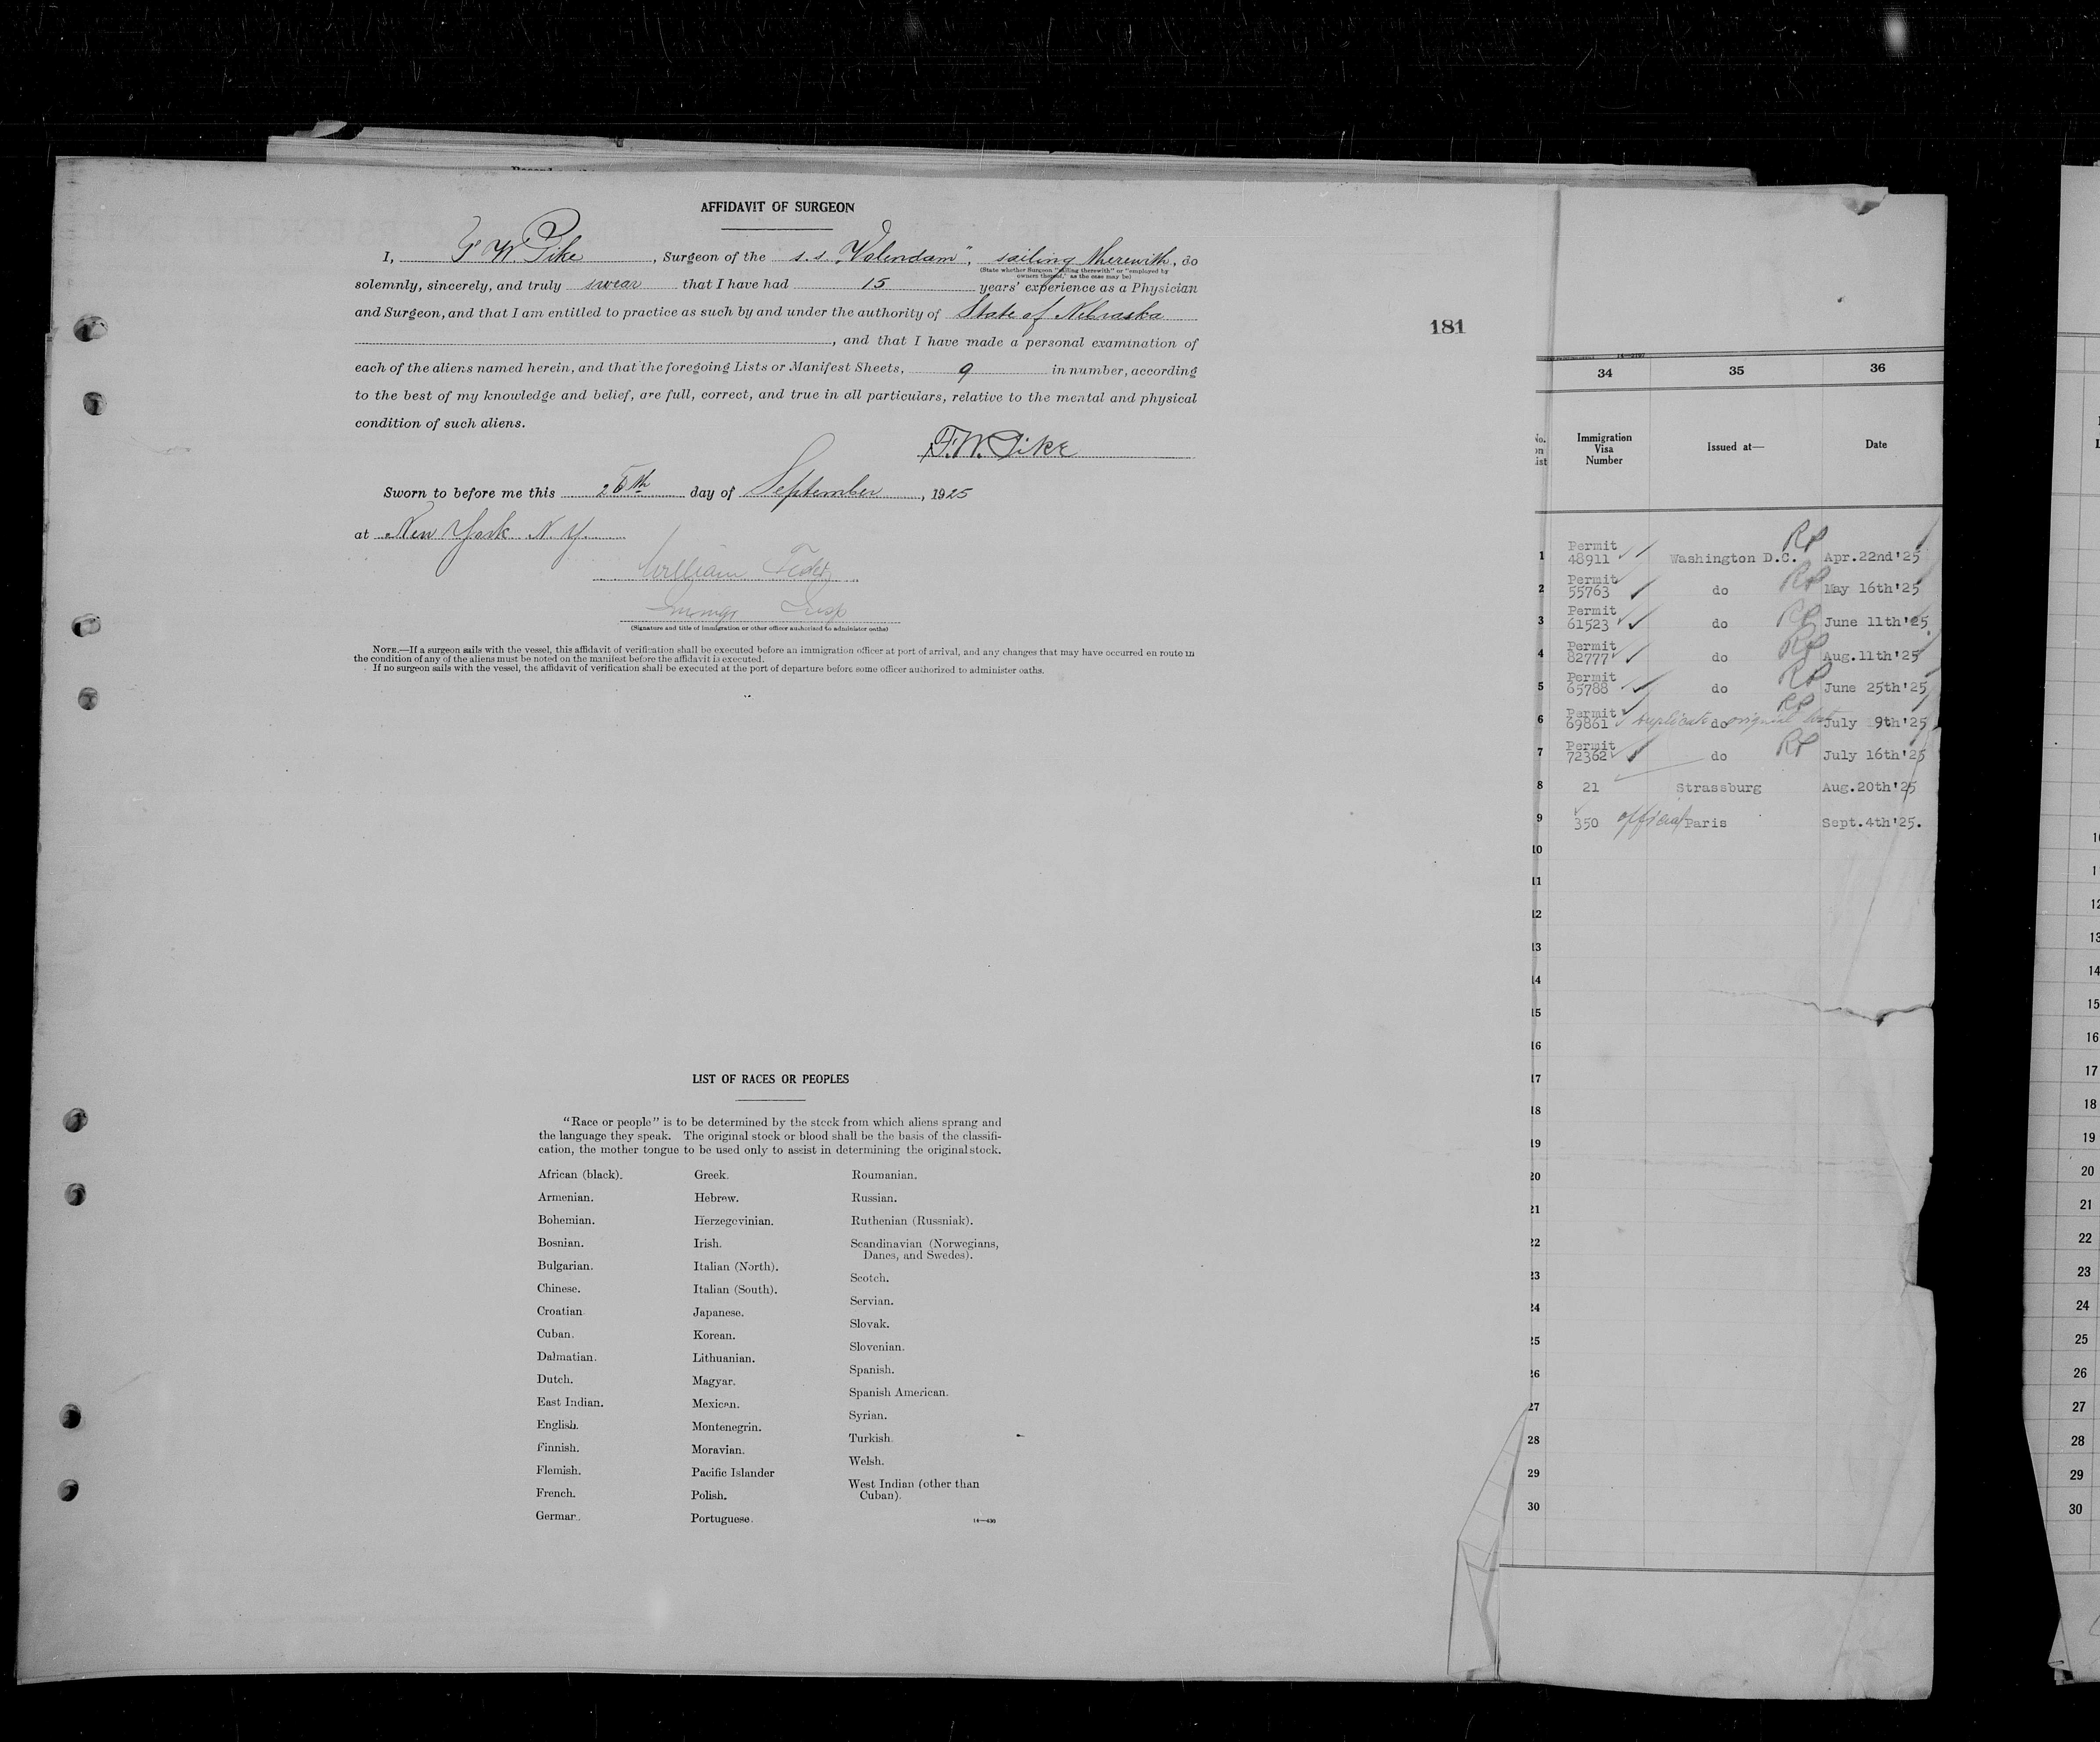 AFFIDAVIT OF SURGEON
I, F W. Pike, Surgeon of the s.s. "Volendam", sailing therewith, do
(State whether Surgeon "sailing therewith" or "employed by
owners thereof," as the case may be)
solemnly, sincerely, and truly swear that I have had 15 years' experience as a Physician
and Surgeon, and that I am entitled to practice as such by and under the authority of State of Nebraska
, and that I have made a personal examination of
each of the aliens named herein, and that the foregoing Lists or Manifest Sheets, 9 in number, according
to the best of my knowledge and belief, are full, correct, and true in all particulars, relative to the mental and physical
condition of such aliens.
F.W. Pike
Sworn to before me this day of September, 1925
at New York N.Y.
William
Immigr Insp
(Signature and title of immigration or other officer authorized to administer oaths)
NOTE.—If a surgeon sails with the vessel, this affidavit of verification shall be executed before an immigration officer at port of arrival, and any changes that may have occurred en route in
the condition of any of the aliens must be noted on the manifest before the affidavit is executed.
If no surgeon sails with the vessel, the affidavit of verification shall be executed at the port of departure before some officer authorized to administer oaths.
LIST OF RACES OR PEOPLES
"Race or people" is to be determined by the stock from which aliens sprang and
the language they speak. The original stock or blood shall be the basis of the classifi-
cation, the mother tongue to be used only to assist in determining the original stock.
African (black).
Armenian.
Bohemian.
Bosnian.
Bulgarian.
Chinese.
Croatian.
Cuban.
Dalmatian.
Dutch.
East Indian.
English.
Finnish.
Flemish.
French.
German.
Greek.
Hebrew.
Herzegovinian.
Irish.
Italian (North).
Italian (South).
Japanese.
Korean.
Lithuanian.
Magyar.
Mexican.
Montenegrin.
Moravian.
Pacific Islander
Polish.
Portuguese.
Roumanian.
Russian.
Ruthenian (Russniak).
Scandinavian (Norwegians,
Danes, and Swedes).
Scotch.
Servian.
Slovak.
Slovenian.
Spanish.
Spanish American.
Syrian.
Turkish.
Welsh.
West Indian (other than
Cuban).
14—430
181
34 35 36
No.
on
List
Immigration
Visa
Number
Issued at—
Date
1 Permit 48911 Washington D.C. RP Apr.22nd'25
2 Permit 55763 do RP May 16th'25
3 Permit 61523 do RP June 11th'25
4 Permit 82777 do RP Aug.11th'25
5 Permit 65788 do RP June 25th'25
6 Permit 69861 duplicate do original RP July 9th'25
7 Permit 72362 do RP July 16th'25
8 21 Strassburg Aug.20th'25
9 350 official Paris Sept.4th'25.
10
11
12
13
14
15
16
17
18
19
20
21
22
23
24
25
26
27
28
29
30
12
13
14
15
16
17
18
19
20
21
22
23
24
25
26
27
28
29
30